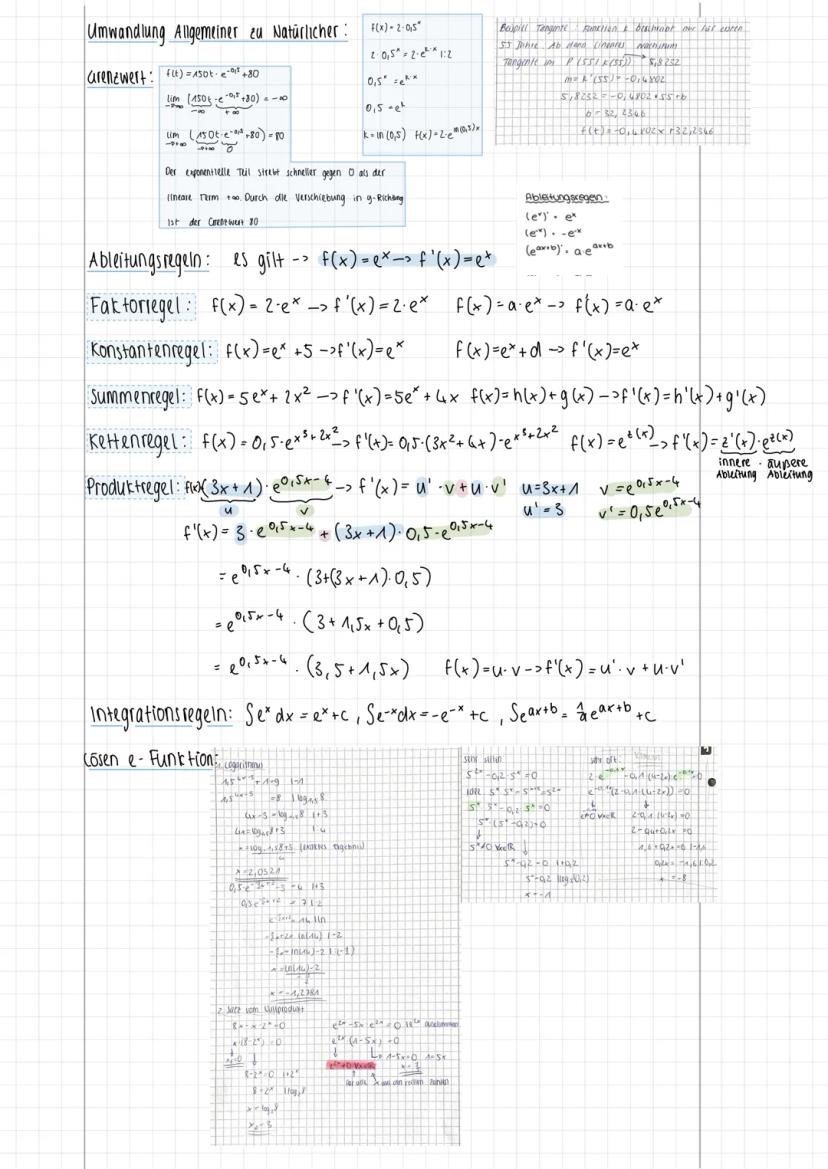 Umwandlung Allgemeiner zu Natürlicher:
f(x) = 2·0,5ˣ
2·0,5ˣ = 2·eᵏ·ˣ 1:2
0,5ˣ = eᵏ·ˣ
0,5 = eᵏ
k = ln(0,5) f(x) = 2·e^(ln(0,5)x)
Beispiel Tangente: Funktion k beschreibt nur für ersten
55 Jahre. Ab dann lineares Wachstum
Tangente im P(55/k(55)) → 5,8232
m = k'(55) = -0,4802
5,8232 = -0,4802·55+b
b = 32,2346
f(t) = -0,4802x+32,2346
Grenzwert:
f(t) = 150t·e^-0,5+80
lim (150t·e^-0,5+80) = -∞
-∞ +∞
lim (150t·e^-0,5+80) = 80
→+∞ 0
Der exponentielle Teil strebt schneller gegen 0 als der
lineare Term +∞. Durch die Verschiebung in y-Richtung
ist der Grenzwert 80
Ableitungsregeln:
(eˣ)' = eˣ
(e⁻ˣ) = -e⁻ˣ
(e^(ax+b))' = a·e^(ax+b)
Ableitungsregeln: es gilt -> f(x) = eˣ -> f'(x) = eˣ
Faktorregel: f(x) = 2·eˣ -> f'(x) = 2·eˣ f(x) = a·eˣ -> f'(x) = a·eˣ
Konstantenregel: f(x) = eˣ +5 -> f'(x) = eˣ f(x) = eˣ+d -> f'(x) = eˣ
Summenregel: f(x) = 5eˣ + 2x² -> f'(x) = 5eˣ + 4x f(x) = h(x)+g(x) -> f'(x) = h'(x)+g'(x)
Kettenregel: f(x) = 0,5·e^(x³+2x²) -> f'(x) = 0,5·(3x²+4x)·e^(x³+2x²) f(x) = e^z(x) -> f'(x) = z'(x)·e^z(x)
innere · äußere
Ableitung Ableitung
Produktregel: f(x)(3x+1)·e^(0,5x-4) -> f'(x) = u'·v+u·v' u=3x+1 v=e^(0,5x-4)
u v u'=3 v'=0,5e^(0,5x-4)
f'(x) = 3·e^(0,5x-4) + (3x+1)·0,5·e^(0,5x-4)
= e^(0,5x-4) · (3+(3x+1)·0,5)
= e^(0,5x-4) · (3+1,5x+0,5)
= e^(0,5x-4) · (3,5+1,5x) f(x)=u·v -> f'(x) = u'·v + u·v'
Integrationsregeln: ∫eˣ dx = eˣ+c, ∫e⁻ˣdx = -e⁻ˣ +c, ∫e^(ax+b) = 1/a e^(ax+b) +c
Lösen e-Funktion:
1. Logarithmus
1,5^(4x-3) +1=9 1-1
1,5^(4x-3) =8 | log₁,₅8
4x-3 = log₁,₅8 1+3
4x = log₁,₅8+3 1:4
(exaktes Ergebnis)
x = 2,0321
x = -1,2781
2. Satz vom Nullprodukt
8x-x·2ˣ=0
x·(8-2ˣ)=0
x₁=0
8-2ˣ=0 1+2ˣ
8=2ˣ 1log₂8
x=log₂8
x₂=3
e²ˣ-5x·e²ˣ=0
e²ˣ(1-5x)=0
1-5x=0 1=5x
e²ˣ≠0 ∀x∈ℝ
für alle x aus den reellen Zahlen
sehr selten
5²ˣ-0,2·5ˣ=0
5ˣ·5ˣ-0,2·5ˣ=0
5ˣ·(5ˣ-0,2)=0
5ˣ≠0 ∀x∈ℝ
5ˣ-0,2=0 1+0,2
5ˣ=0,2 1log₅(0,2)
x=-1
sehr oft:
2-0,1(4-2x)=0
2-0,4+0,2x=0
1,6+0,2x=0 1-1,6
0,2x=-1,6 1:0,2
x=-8